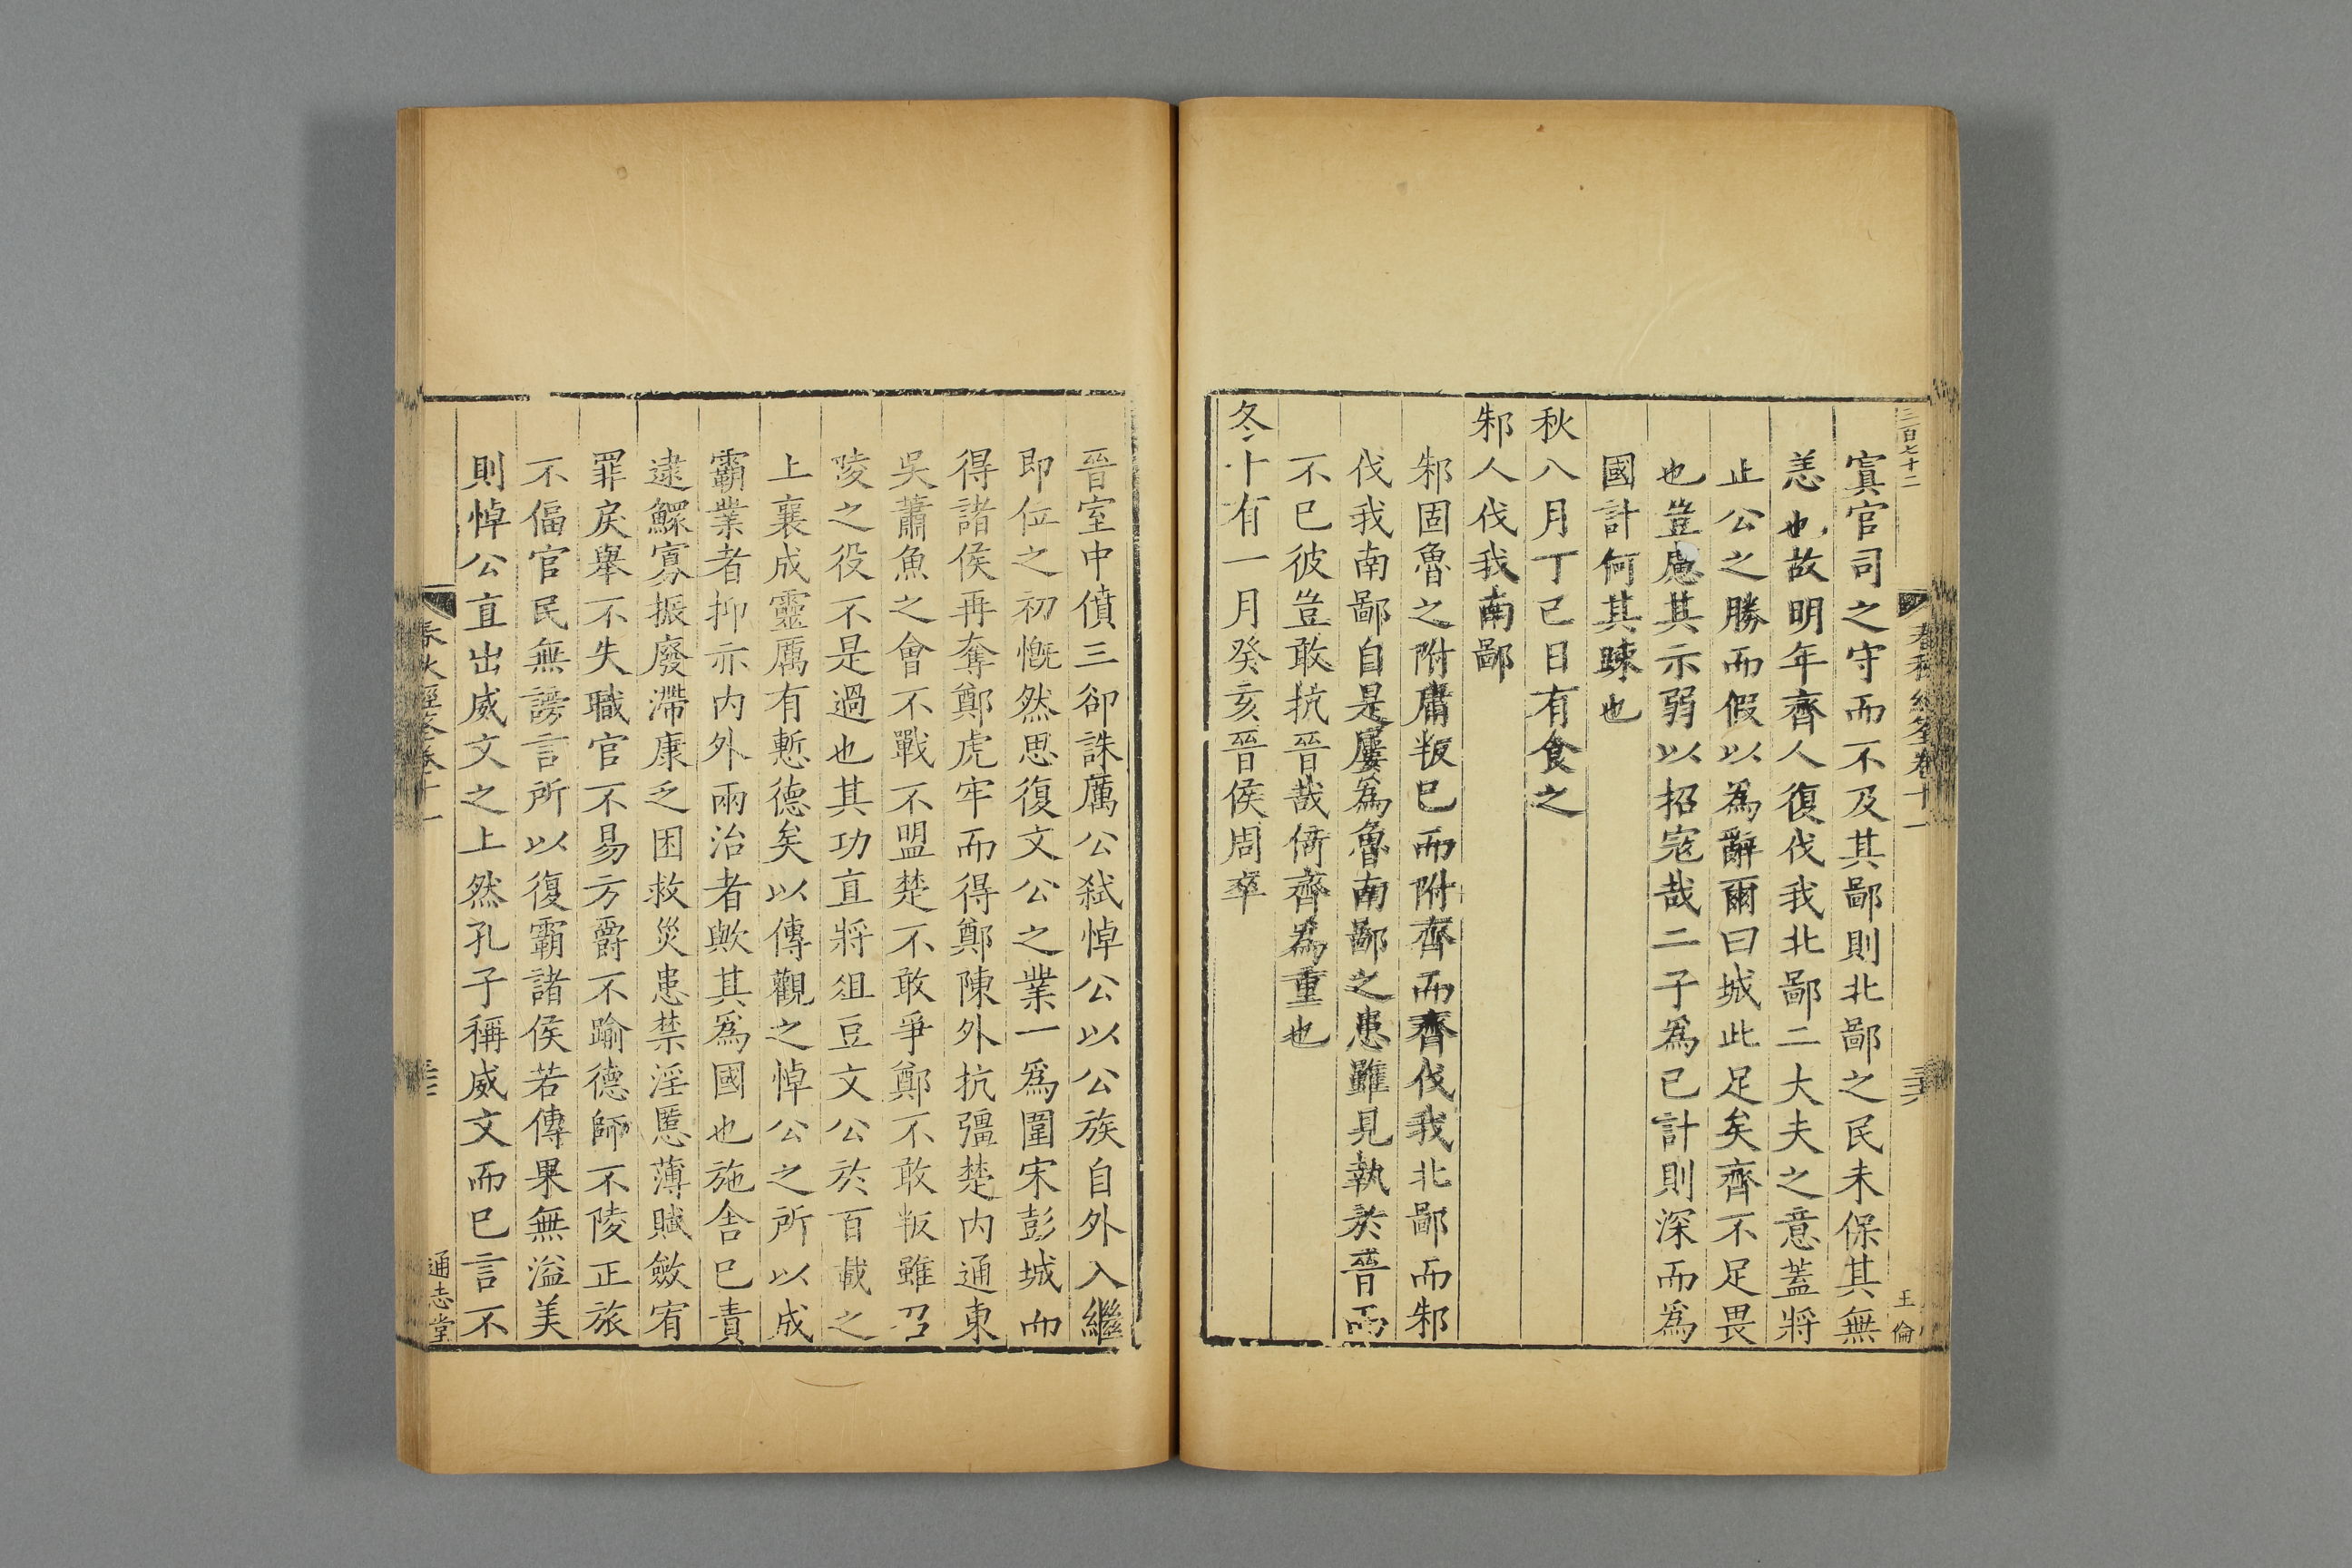 三百七十二
寘官司之守而不及其鄙則北鄙之民未保其無
恙也故明年齊人復伐我北鄙二大夫之意蓋將
止公之勝而假以為辭爾曰城此足矣齊不足畏
也豈慮其示弱以招宼哉二子為已計則深而為
國計何其踈也
秋八月丁巳日有食之
邾人伐我南鄙
邾固魯之附庸叛巳而附齊而齊伐我北鄙而邾
伐我南鄙自是屢為魯南鄙之患雖見執於晉而
不已彼豈敢抗晉哉倚齊為重也
冬十有一月癸亥晉侯周卒
王倫
晉室中僨三郤誅厲公弑悼公以公族自外入繼
即位之初慨然思復文公之業一為圍宋彭城而
得諸侯再奪鄭虎牢而得鄭陳外抗彊楚内通東
吳蕭魚之會不戰不盟楚不敢爭鄭不敢叛雖召
陵之役不是過也其功直將俎豆文公於百載之
上襄成靈厲有慙德矣以傳觀之悼公之所以成
霸業者抑亦内外兩治者歟其爲國也施舍巳責
逮鰥寡振廢滯康乏困救災患禁淫慝薄賦斂宥
罪戾舉不失職官不易方爵不踰德師不陵正旅
不偪官民無謗言所以復霸諸侯若傳果無溢美
則悼公直出威文之上然孔子稱威文而巳言不
春秋經筌卷十一
通志堂